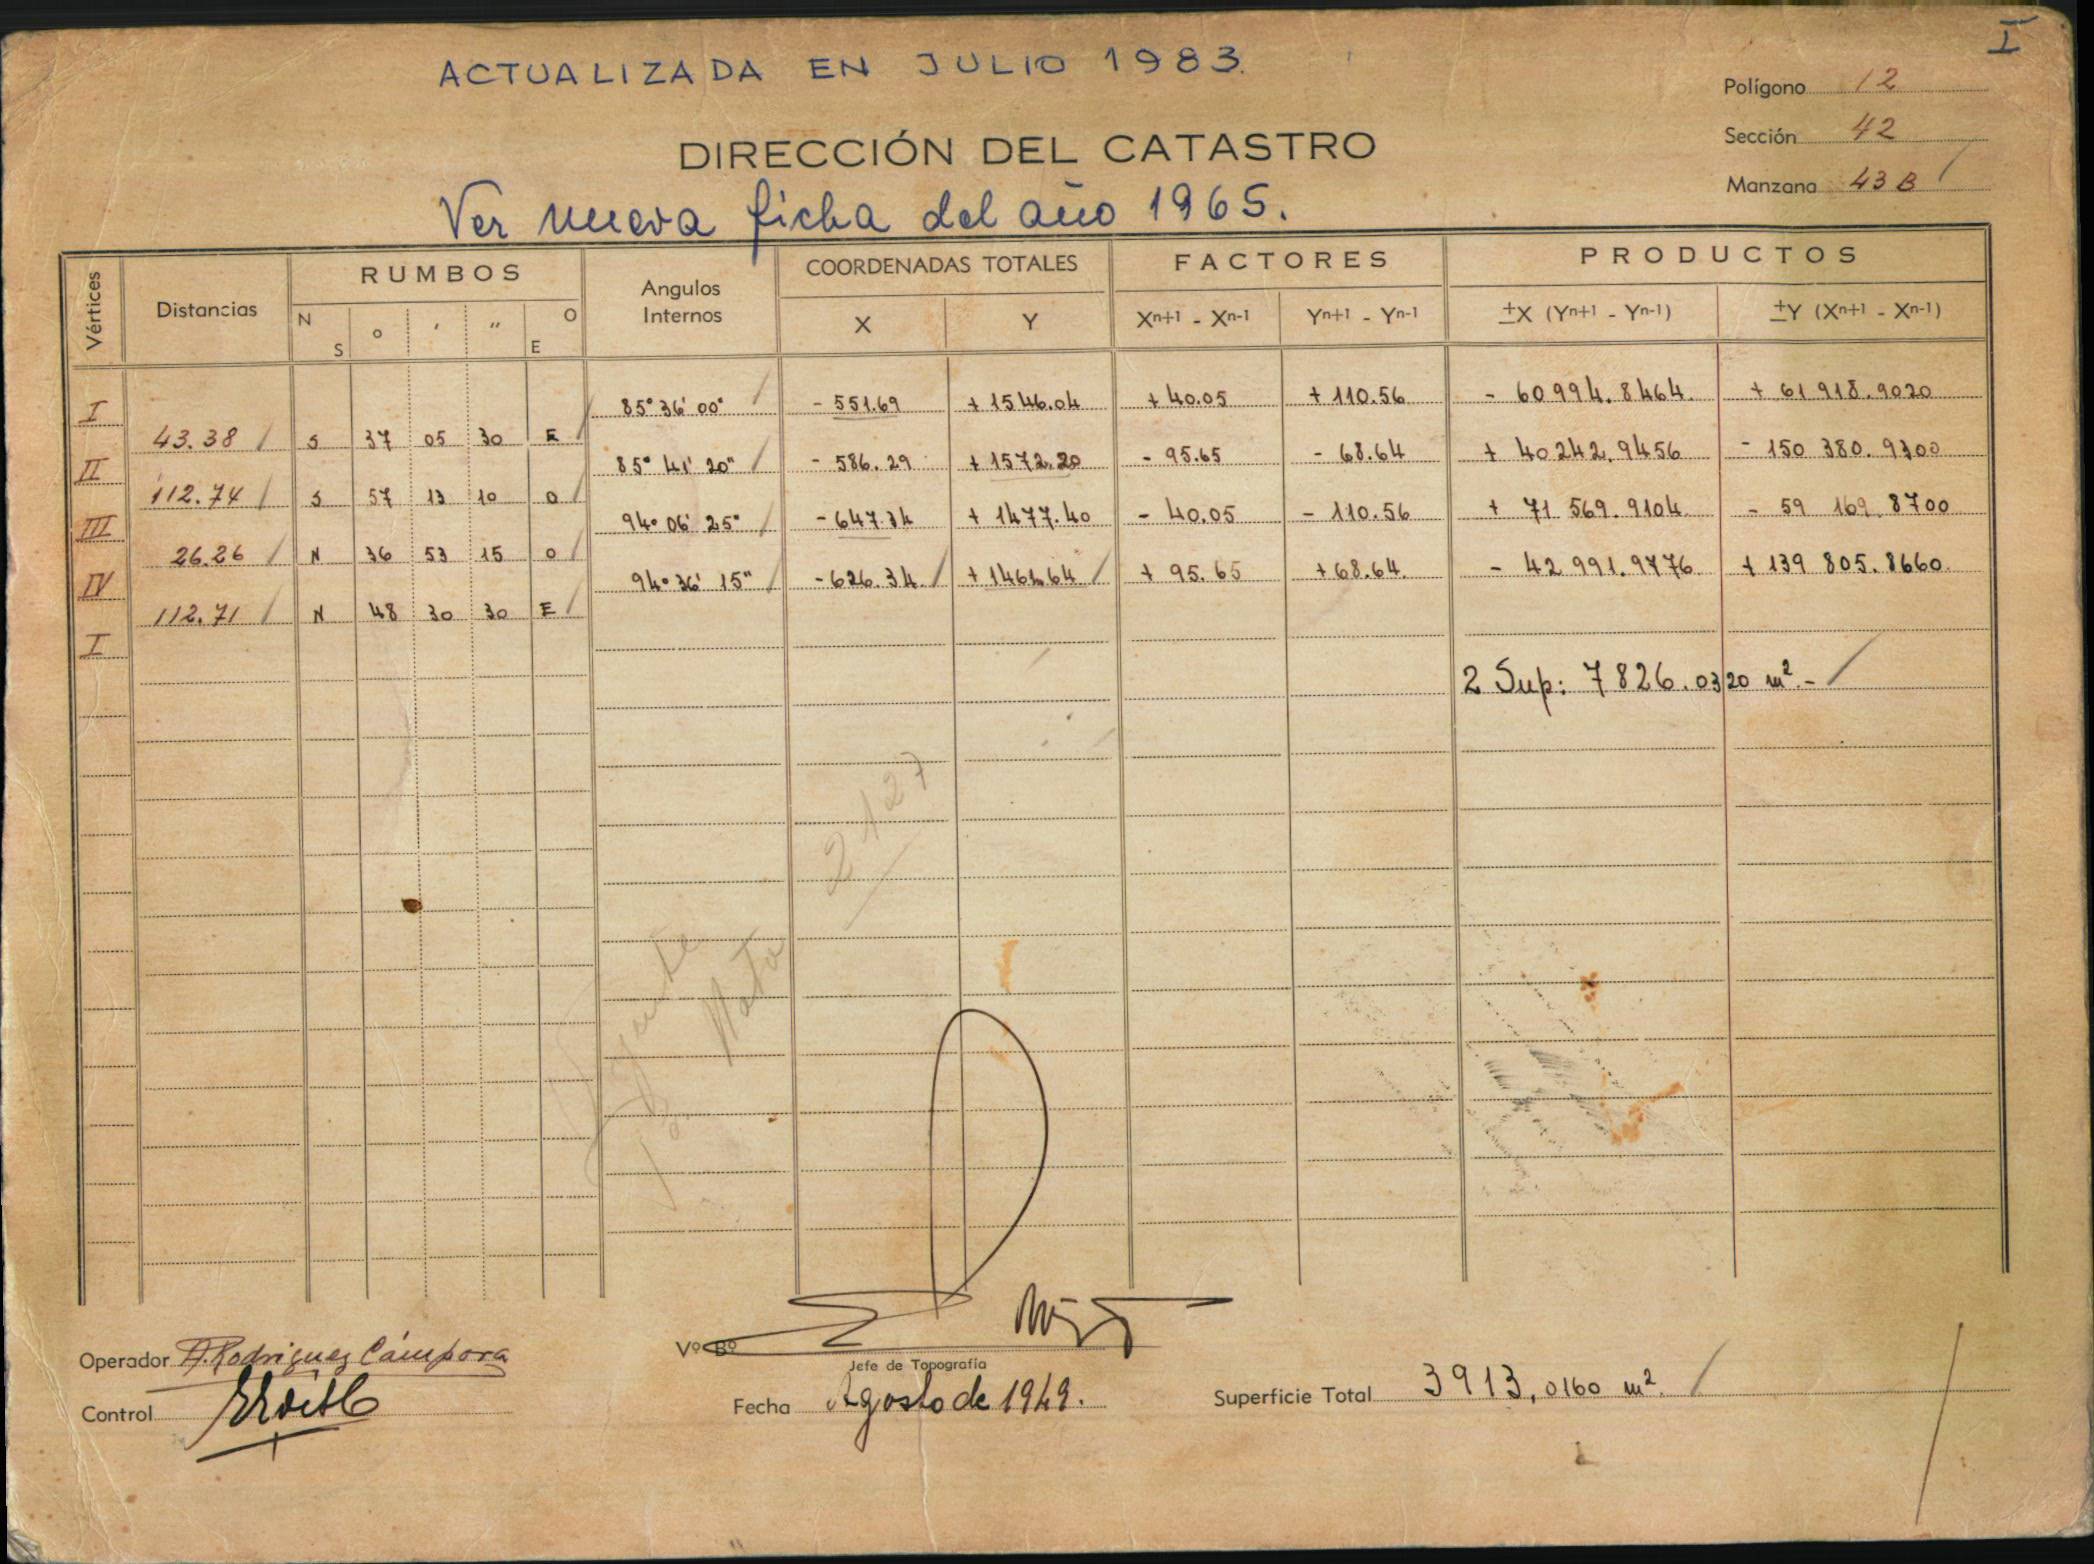 I
ACTUALIZADA EN JULIO 1983.
Polígono 12
Sección 42
Manzana 43 B
DIRECCIÓN DEL CATASTRO
Ver nueva ficha del año 1965.
Vértices Distancias RUMBOS Angulos Internos COORDENADAS TOTALES FACTORES PRODUCTOS
N S ° ' " O E X Y Xⁿ⁺¹ - Xⁿ⁻¹ Yⁿ⁺¹ - Yⁿ⁻¹ ±X (Yⁿ⁺¹ - Yⁿ⁻¹) ±Y (Xⁿ⁺¹ - Xⁿ⁻¹)
I 85° 36' 00" - 551.69 + 1546.04 + 40.05 + 110.56 - 60994.8464 + 61918.9020
43.38 S 37 05 30 E
II 85° 41' 20" - 586.29 + 1572.20 - 95.65 - 68.64 + 40242.9456 - 150 380.9300
112.74 S 57 13 10 O
III 94° 06' 25" - 647.34 + 1477.40 - 40.05 - 110.56 + 71 569.9104 - 59 169.8700
26.26 N 36 53 15 O
IV 94° 36' 15" - 626.34 + 1461.64 + 95.65 + 68.64 - 42 991.9776 + 139 805.8660
112.71 N 48 30 30 E
I
2 Sup: 7826.0320 m².-
2127
Operador A. Rodriguez Cámpora
Vº Bº
Jefe de Topografía
Control
Fecha Agosto de 1949.
Superficie Total 3913,0160 m².